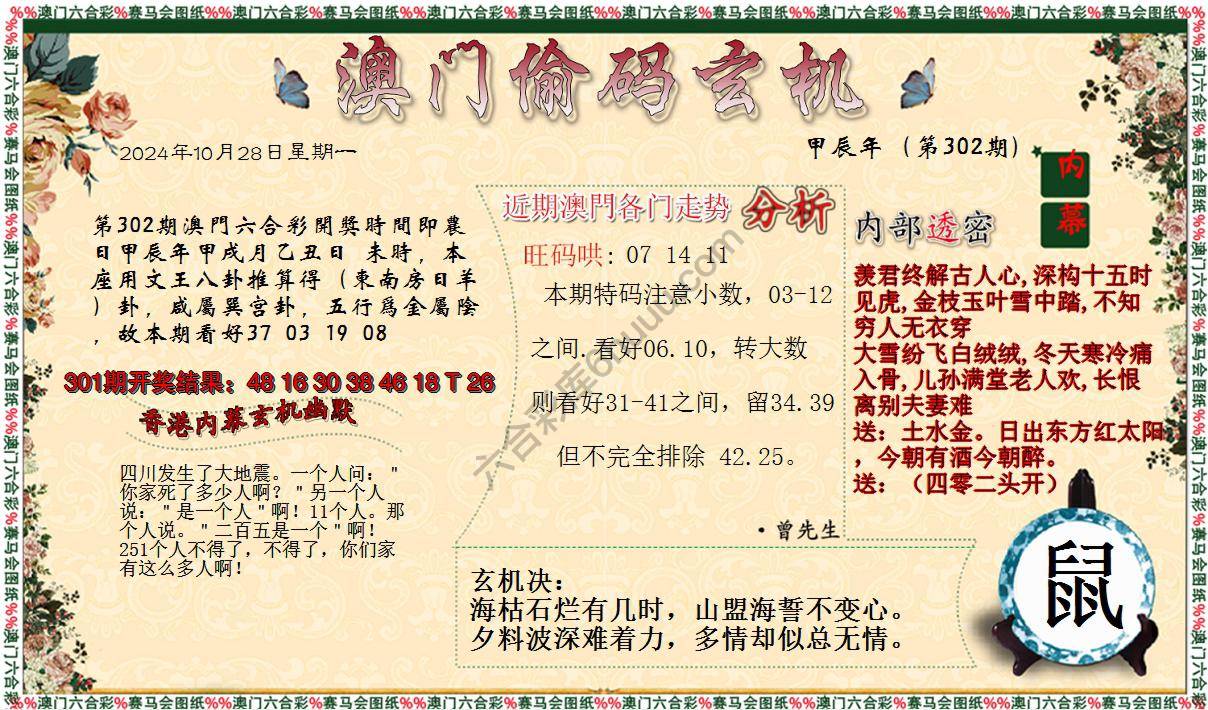 %%澳门六合彩%赛马会图纸%%澳门六合彩%赛马会图纸%%澳门六合彩%赛马会图纸%%澳门六合彩%赛马会图纸%%澳门六合彩%赛马会图纸%%澳门六合彩%赛马会图纸
澳门偷码玄机
2024年10月28日星期一
甲辰年（第302期）
内幕
第302期澳門六合彩開獎時間即農
日甲辰年甲戌月乙丑日 未時，本
座用文王八卦推算得（東南房日羊
）卦，咸屬巽宫卦，五行爲金屬陰
，故本期看好37 03 19 08
301期开奖结果：48 16 30 38 46 18 T 26
香港内幕玄机幽默
四川发生了大地震。一个人问："
你家死了多少人啊？"另一个人
说："是一个人"啊！11个人。那
个人说。"二百五是一个"啊！
251个人不得了，不得了，你们家
有这么多人啊！
近期澳門各门走势 分析
旺码哄: 07 14 11
本期特码注意小数，03-12
之间.看好06.10，转大数
则看好31-41之间，留34.39
但不完全排除 42.25。
·曾先生
内部透密
羡君终解古人心,深构十五时
见虎,金枝玉叶雪中踏,不知
穷人无衣穿
大雪纷飞白绒绒,冬天寒冷痛
入骨,儿孙满堂老人欢,长恨
离别夫妻难
送：土水金。日出东方红太阳
，今朝有酒今朝醉。
送：（四零二头开）
玄机决：
海枯石烂有几时，山盟海誓不变心。
夕料波深难着力，多情却似总无情。
鼠
%%澳门六合彩%赛马会图纸%%澳门六合彩%赛马会图纸%%澳门六合彩%赛马会图纸%%澳门六合彩%赛马会图纸%%澳门六合彩%赛马会图纸%%澳门六合彩%赛马会图纸